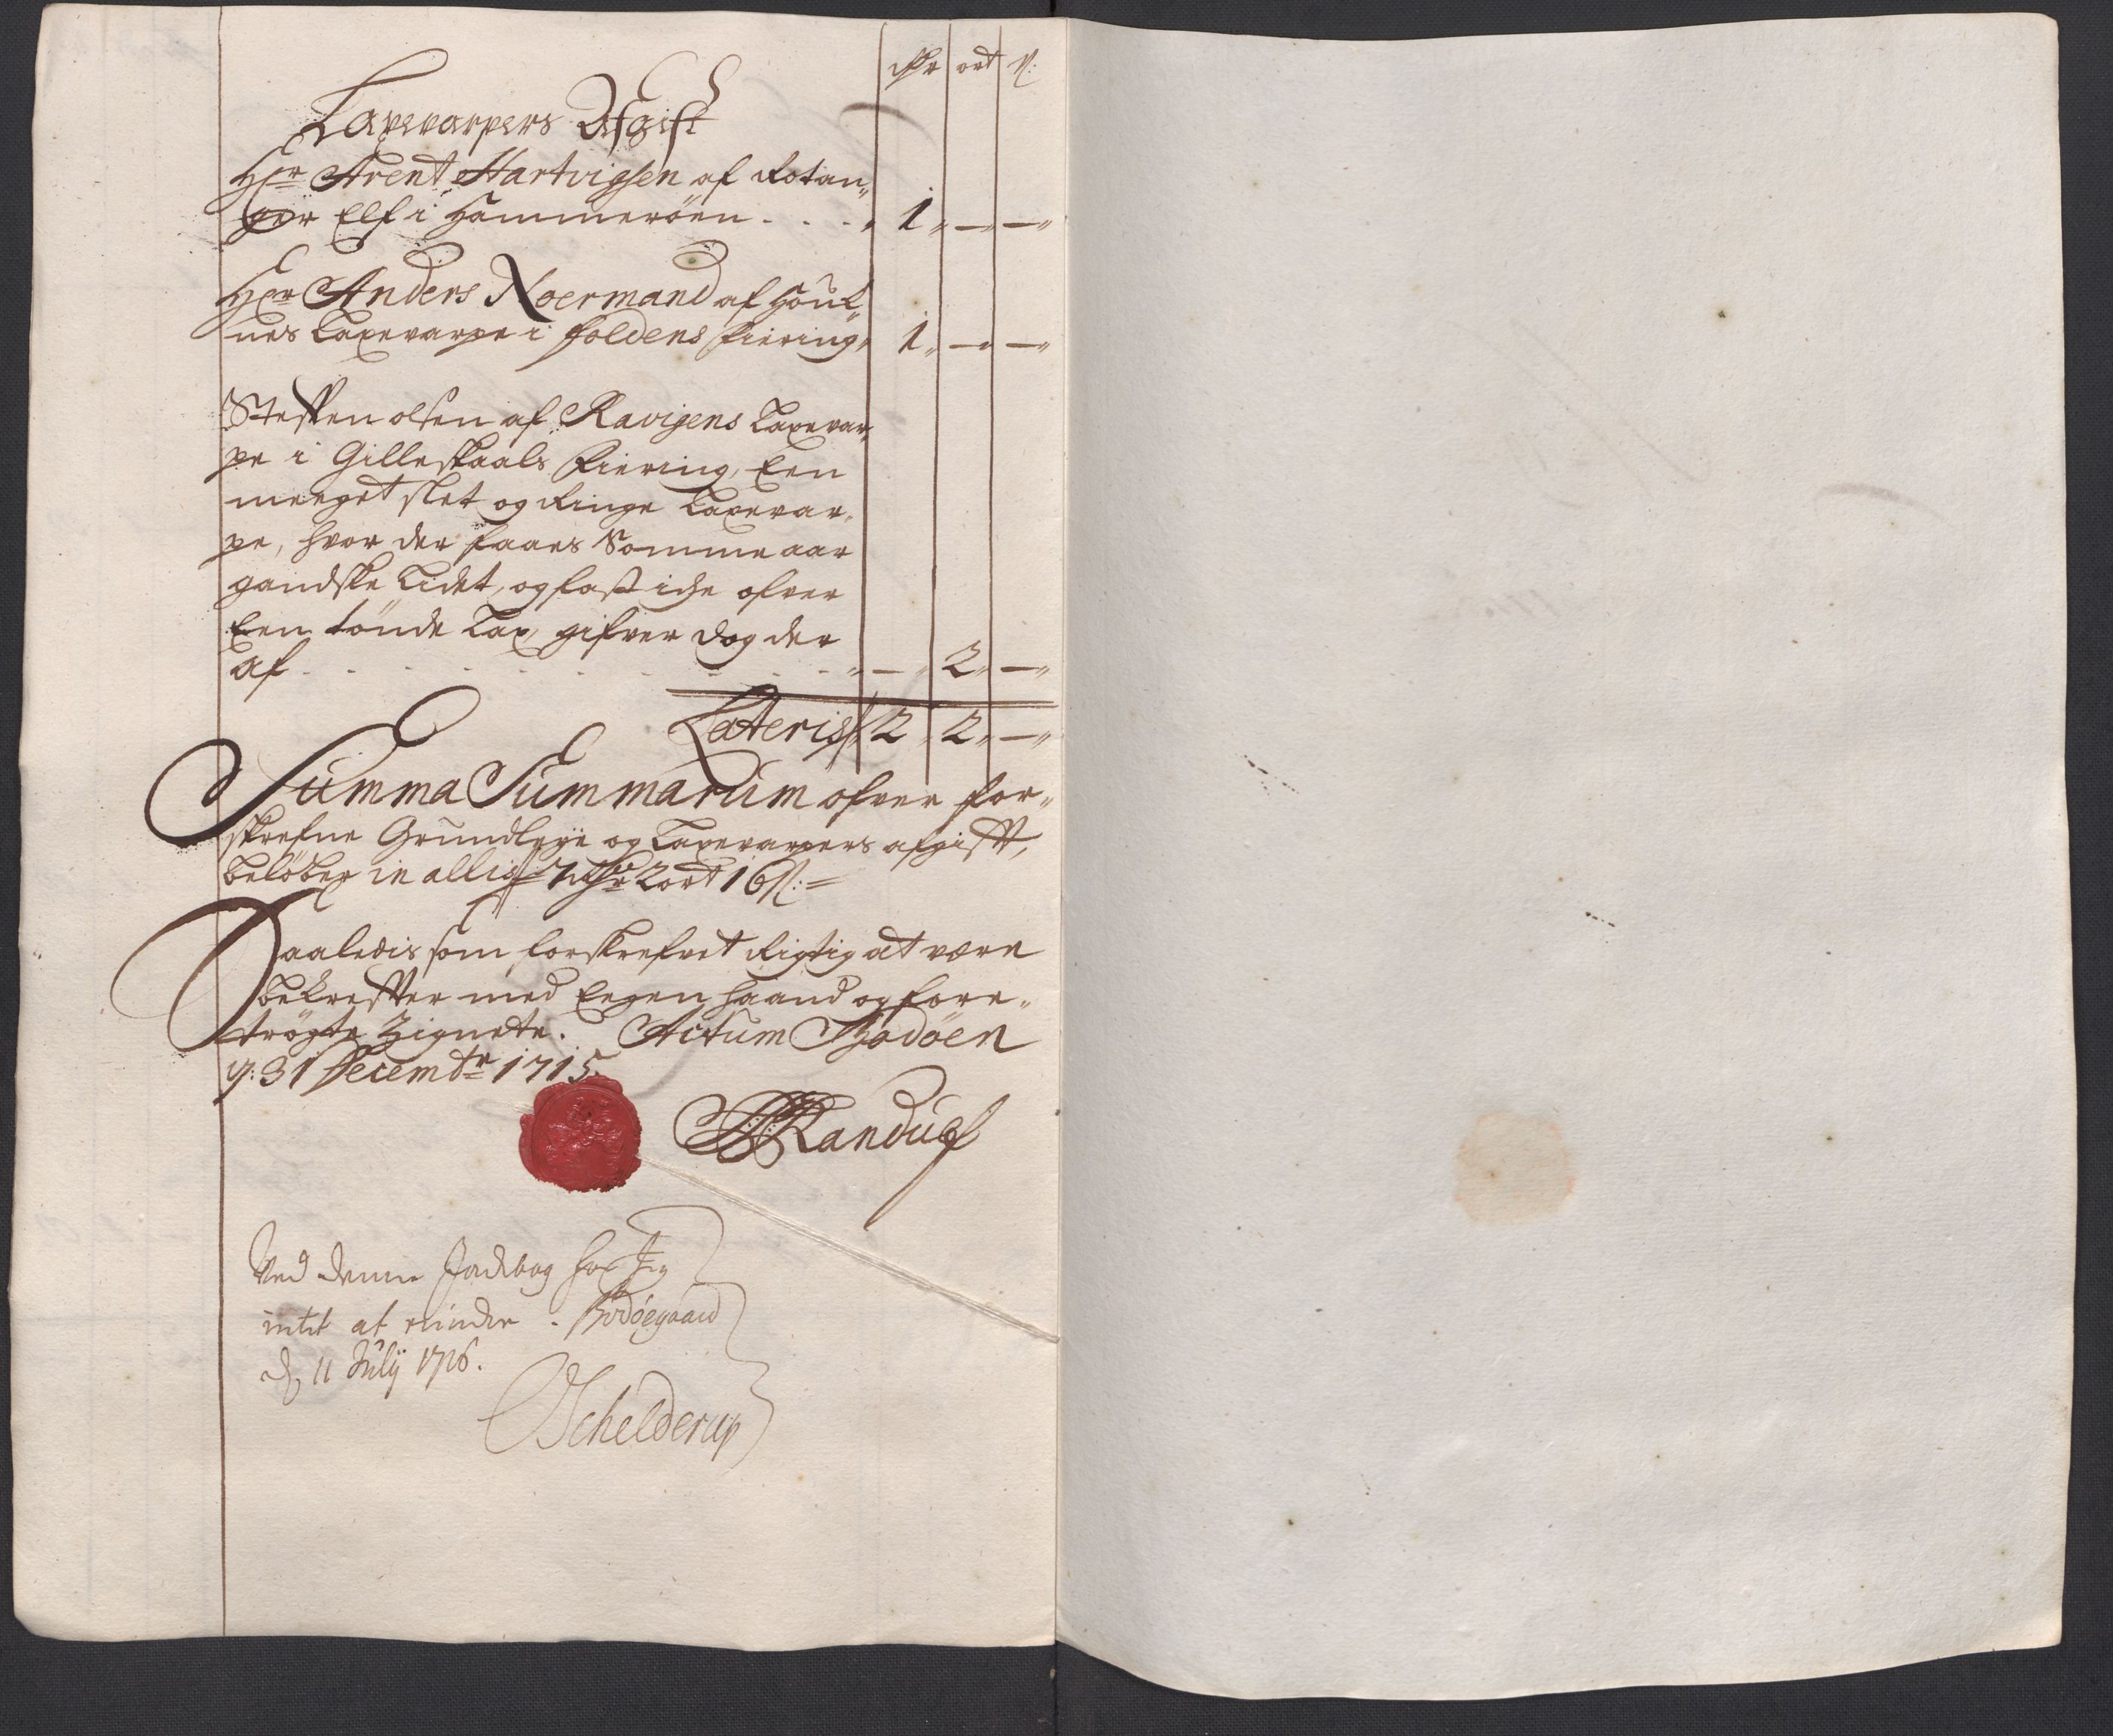 Rdr ort ß:
Laxevarpers Afgift
Hr Arent Hartvigsen af Rotan„
ger Elf i Hammerøen . . . „ 1„ —„ —„
Hr Anders Noermand af
nes Laxevarpe i Foldens Fiering„ 1„ —„ —„
Steffen Olsen af Ravigens Laxevar„
pe i Gilleskaals Fiering, Een
meeget slet og Ringe Laxevar„
pe, hvor der faaes Somme aar
gandske Lidet, og fast iche ofver
Een tønde Lax, gifver dog der
af . . . . . . . . . „ —„ 2„ —„
Lateris 2„ 2„ —„
Summa Summarum ofver for„
skrefne Grundleye og Laxevarpers afgifft,
beløber in allis 7 Rdr 2 ort 16 ß: =
Saaledis som forskrefvet Rigtig at være
bekreffter med Eegen haand og fore„
trøgte Zignete. Actum Bodøen
d: 31 Decembr 1715.
Randulf
Ved denne Jordebog har Jeg
intet at minde. Bodøegaard
d. 11 July 1716.
Schelderup